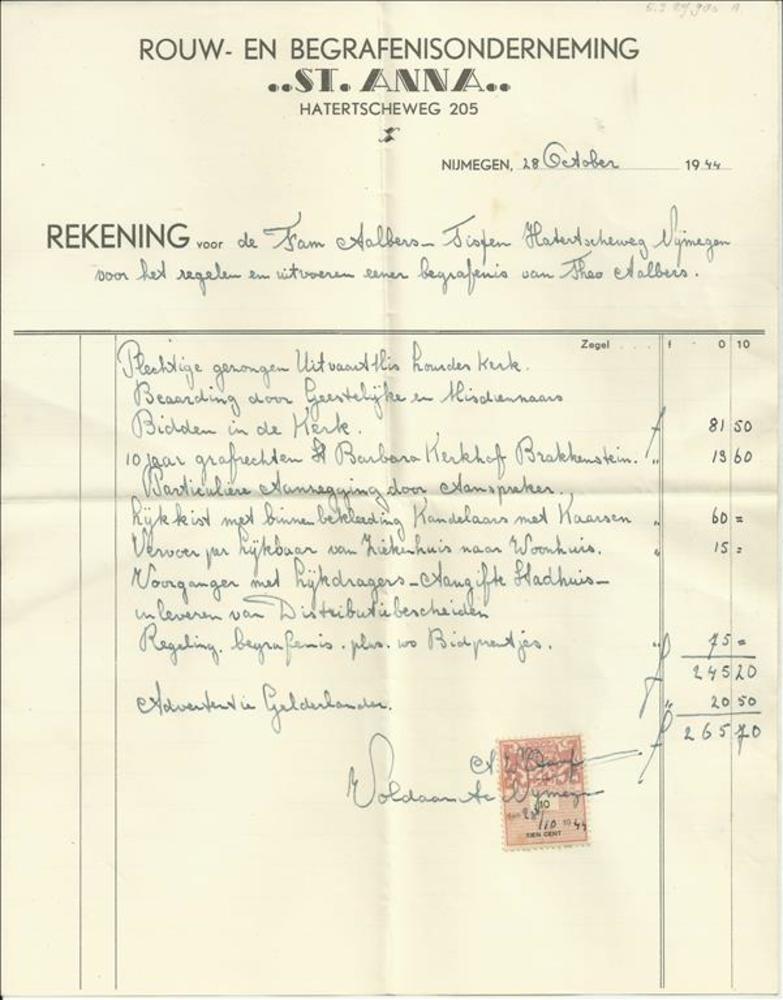 ROUW- EN BEGRAFENISONDERNEMING
..ST. ANNA..
HATERTSCHEWEG 205
NIJMEGEN, 28 October 1944
REKENING voor de Fam Aalbers- Hatertscheweg Nijmegen
voor het regelen en uitvoeren eener begrafenis van Theo Aalbers.
Zegel . . . . f 0 10
Plechtige gezongen Uitvaart Mis Kerk.
Beaarding door Geestelijke en Misdienaars
Bidden in de Kerk. f 81 50
10 jaar grafrechten St Barbara Kerkhof Brakkenstein. " 13 60
Particuliere Aanzegging door Aanspreker.
Lijkkist met binnenbekleeding Kandelaars met Kaarsen " 60 =
Vervoer per lijkbaar van Ziekenhuis naar Woonhuis. " 15 =
Voorganger met Lijkdragers - Aangifte Stadhuis -
inleveren van Distributiebescheiden
Regeling. begrafenis. plus. 100 Bidprentjes. " 75 =
f 245 20
Advertentie Gelderlander. " 20 50
f 265 70
Voldaan te Nijmegen
10
28/10 1944
TIEN CENT